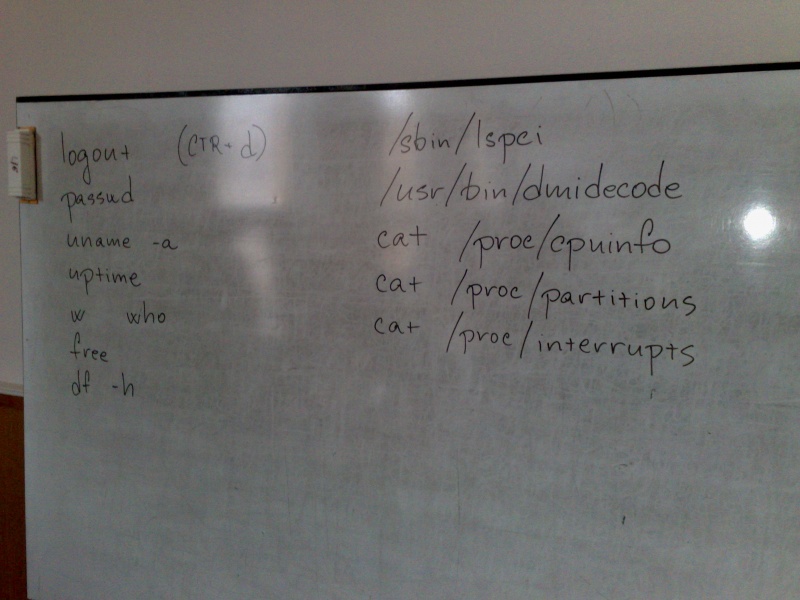 logout (CTR + d)
passwd
uname -a
uptime
w who
free
df -h
/sbin/lspci
/usr/bin/dmidecode
cat /proc/cpuinfo
cat /proc/partitions
cat /proc/interrupts